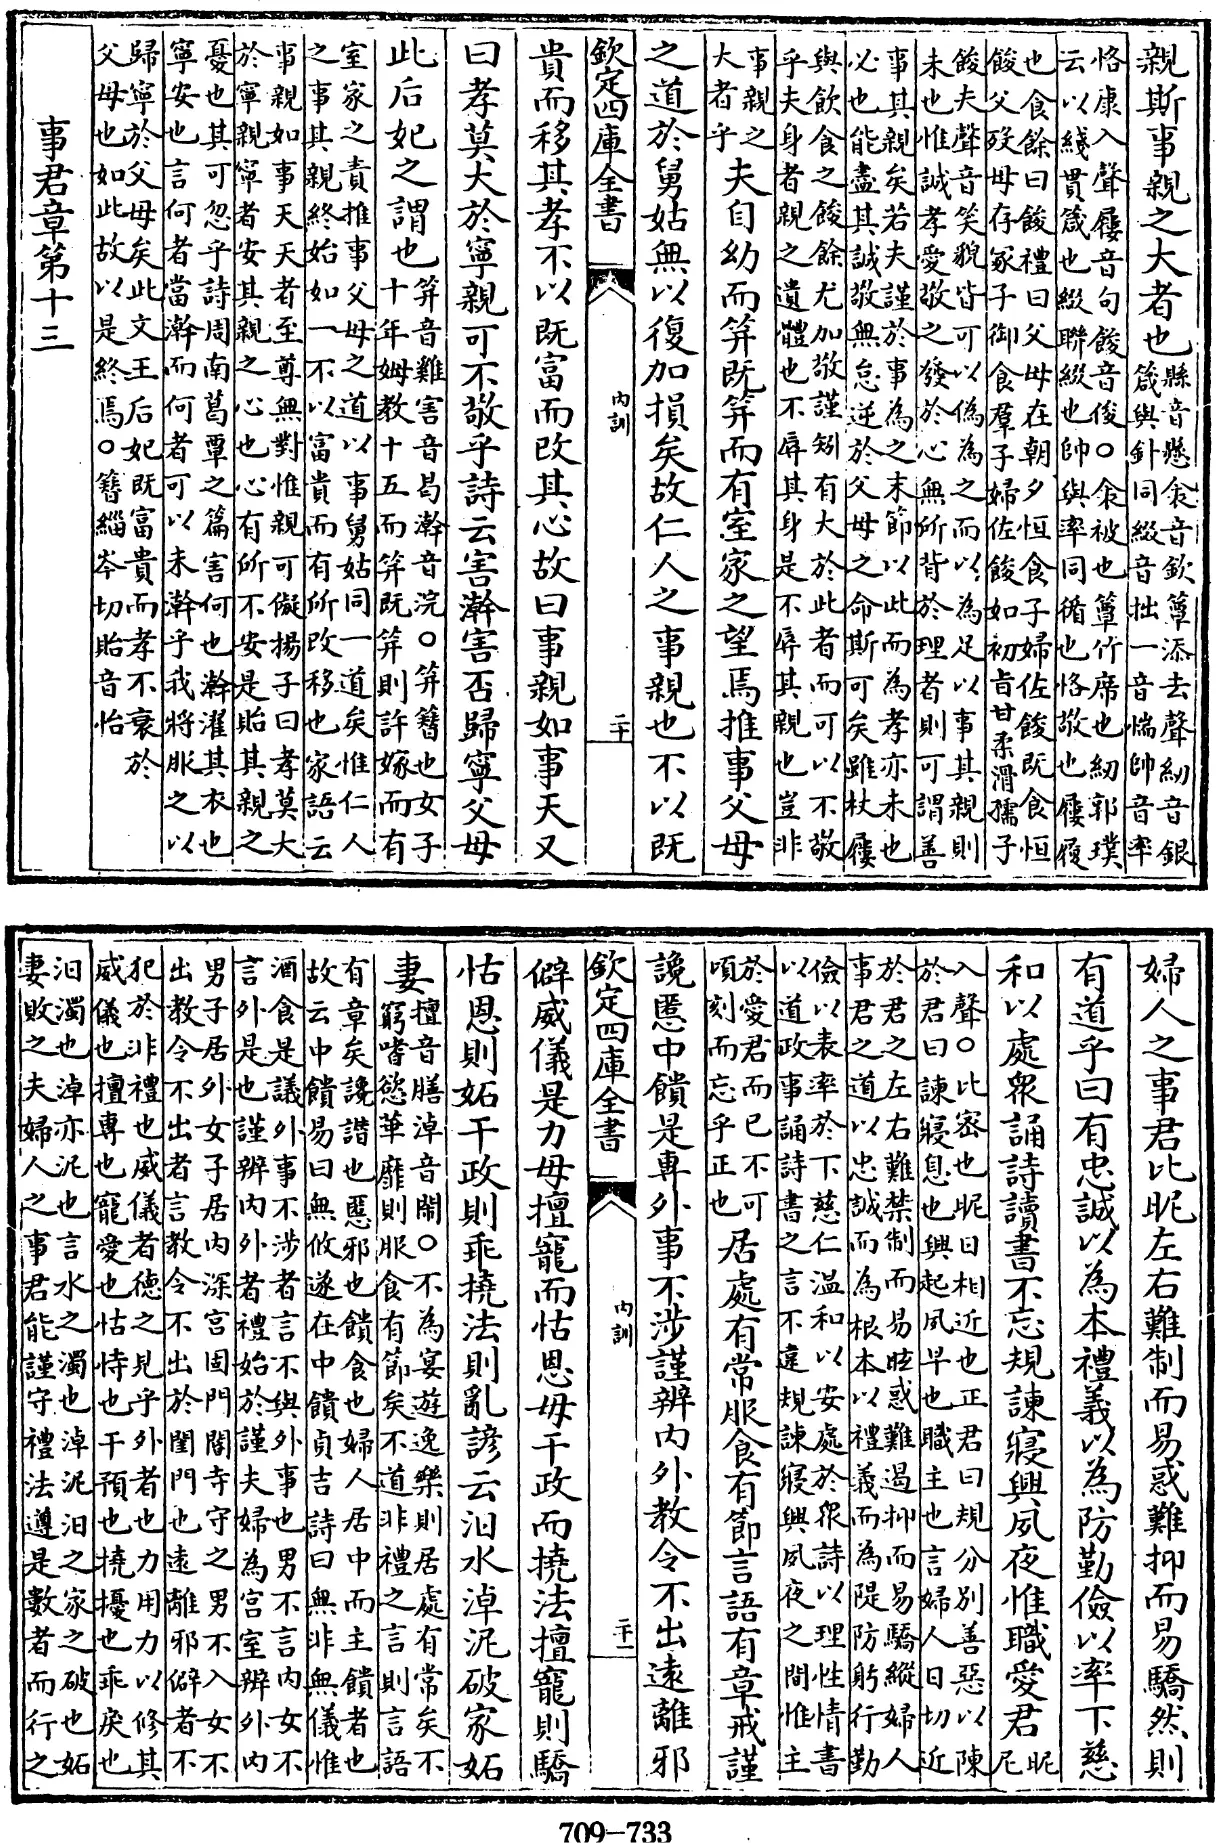 親斯事親之大者也縣音懸衾音欽簟添去聲紉音銀
箴與針同綴音拙一音惴帥音率
恪康入聲屨音句餕音俊〇衾被也簟竹席也紉郭璞
云以綫貫箴也綴聯綴也帥與率同循也恪敬也屨履
也食餘曰餕禮曰父母在朝夕恒食子婦佐餕既食恒
餕父歿母存冢子御食羣子婦佐餕如初旨甘柔滑孺子
餕夫聲音笑貌皆可以偽為之而以為足以事其親則
未也惟誠孝愛敬之發於心無所背於理者則可謂善
事其親矣若夫謹於事為之末節以此而為孝亦未也
必也能盡其誠敬無怠逆於父母之命斯可矣雖杖屨
與飲食之餕餘尤加敬謹矧有大於此者而可以不敬
乎夫身者親之遺體也不辱其身是不辱其親也豈非
事親之
大者乎
夫自幼而笄既笄而有室家之望焉推事父母
之道於舅姑無以復加損矣故仁人之事親也不以既
欽定四庫全書 內訓 二十
貴而移其孝不以既富而改其心故曰事親如事天又
曰孝莫大於寧親可不敬乎詩云害澣害否歸寧父母
此后妃之謂也笄音雞害音曷澣音浣〇笄簪也女子
十年姆教十五而笄既笄則許嫁而有
室家之責推事父母之道以事舅姑同一道矣惟仁人
之事其親終始如一不以富貴而有所改移也家語云
事親如事天天者至尊無對惟親可儗揚子曰孝莫大
於寧親寧者安其親之心也心有所不安是貽其親之
憂也其可忽乎詩周南葛覃之篇害何也澣濯其衣也
寧安也言何者當澣而何者可以未澣乎我將服之以
歸寧於父母矣此文王后妃既富貴而孝不衰於
父母也如此故以是終焉〇簪緇岑切貽音怡
事君章第十三
婦人之事君比昵左右難制而易惑難抑而易驕然則
有道乎曰有忠誠以為本禮義以為防勤儉以率下慈
和以處眾誦詩讀書不忘規諫寢興夙夜惟職愛君昵
尼
入聲〇比密也昵日相近也正君曰規分別善惡以陳
於君曰諫寢息也興起夙早也職主也言婦人日切近
於君之左右難禁制而易眩惑難遏抑而易驕縱婦人
事君之道以忠誠而為根本以禮義而為隄防躬行勤
儉以表率於下慈仁溫和以安處於眾詩以理性情書
以道政事誦詩書之言不違規諫寢興夙夜之間惟主
於愛君而已不可
頃刻而忘乎正也
居處有常服食有節言語有章戒謹
讒慝中饋是專外事不涉謹辨內外教令不出遠離邪
欽定四庫全書 內訓 二十一
僻威儀是力毋擅寵而怙恩毋干政而撓法擅寵則驕
怙恩則妬干政則乖撓法則亂諺云汩水淖泥破家妬
妻擅音膳淖音鬧〇不為宴遊逸樂則居處有常矣不
窮嗜慾華靡則服食有節矣不道非禮之言則言語
有章矣讒譖也慝邪也饋食也婦人居中而主饋者也
故云中饋易曰無攸遂在中饋貞吉詩曰無非無儀惟
酒食是議外事不涉者言不與外事也男不言內女不
言外是也謹辨內外者禮始於謹夫婦為宮室辨外內
男子居外女子居內深宮固門閽寺守之男不入女不
出教令不出者言教令不出於閨門也遠離邪僻者不
犯於非禮也威儀者德之見乎外者也力用力以修其
威儀也擅專也寵愛也怙恃也干預也撓擾也乖戾也
汩濁也淖亦泥也言水之濁也淖泥汩之家之破也妬
妻敗之夫婦人之事君能謹守禮法遵是數者而行之
709-733